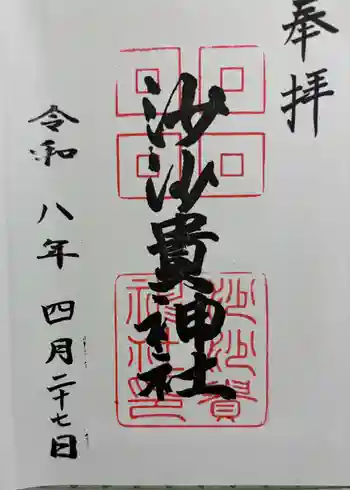 奉拝
沙沙貴神社
沙沙貴神社印
令和八年四月二十七日